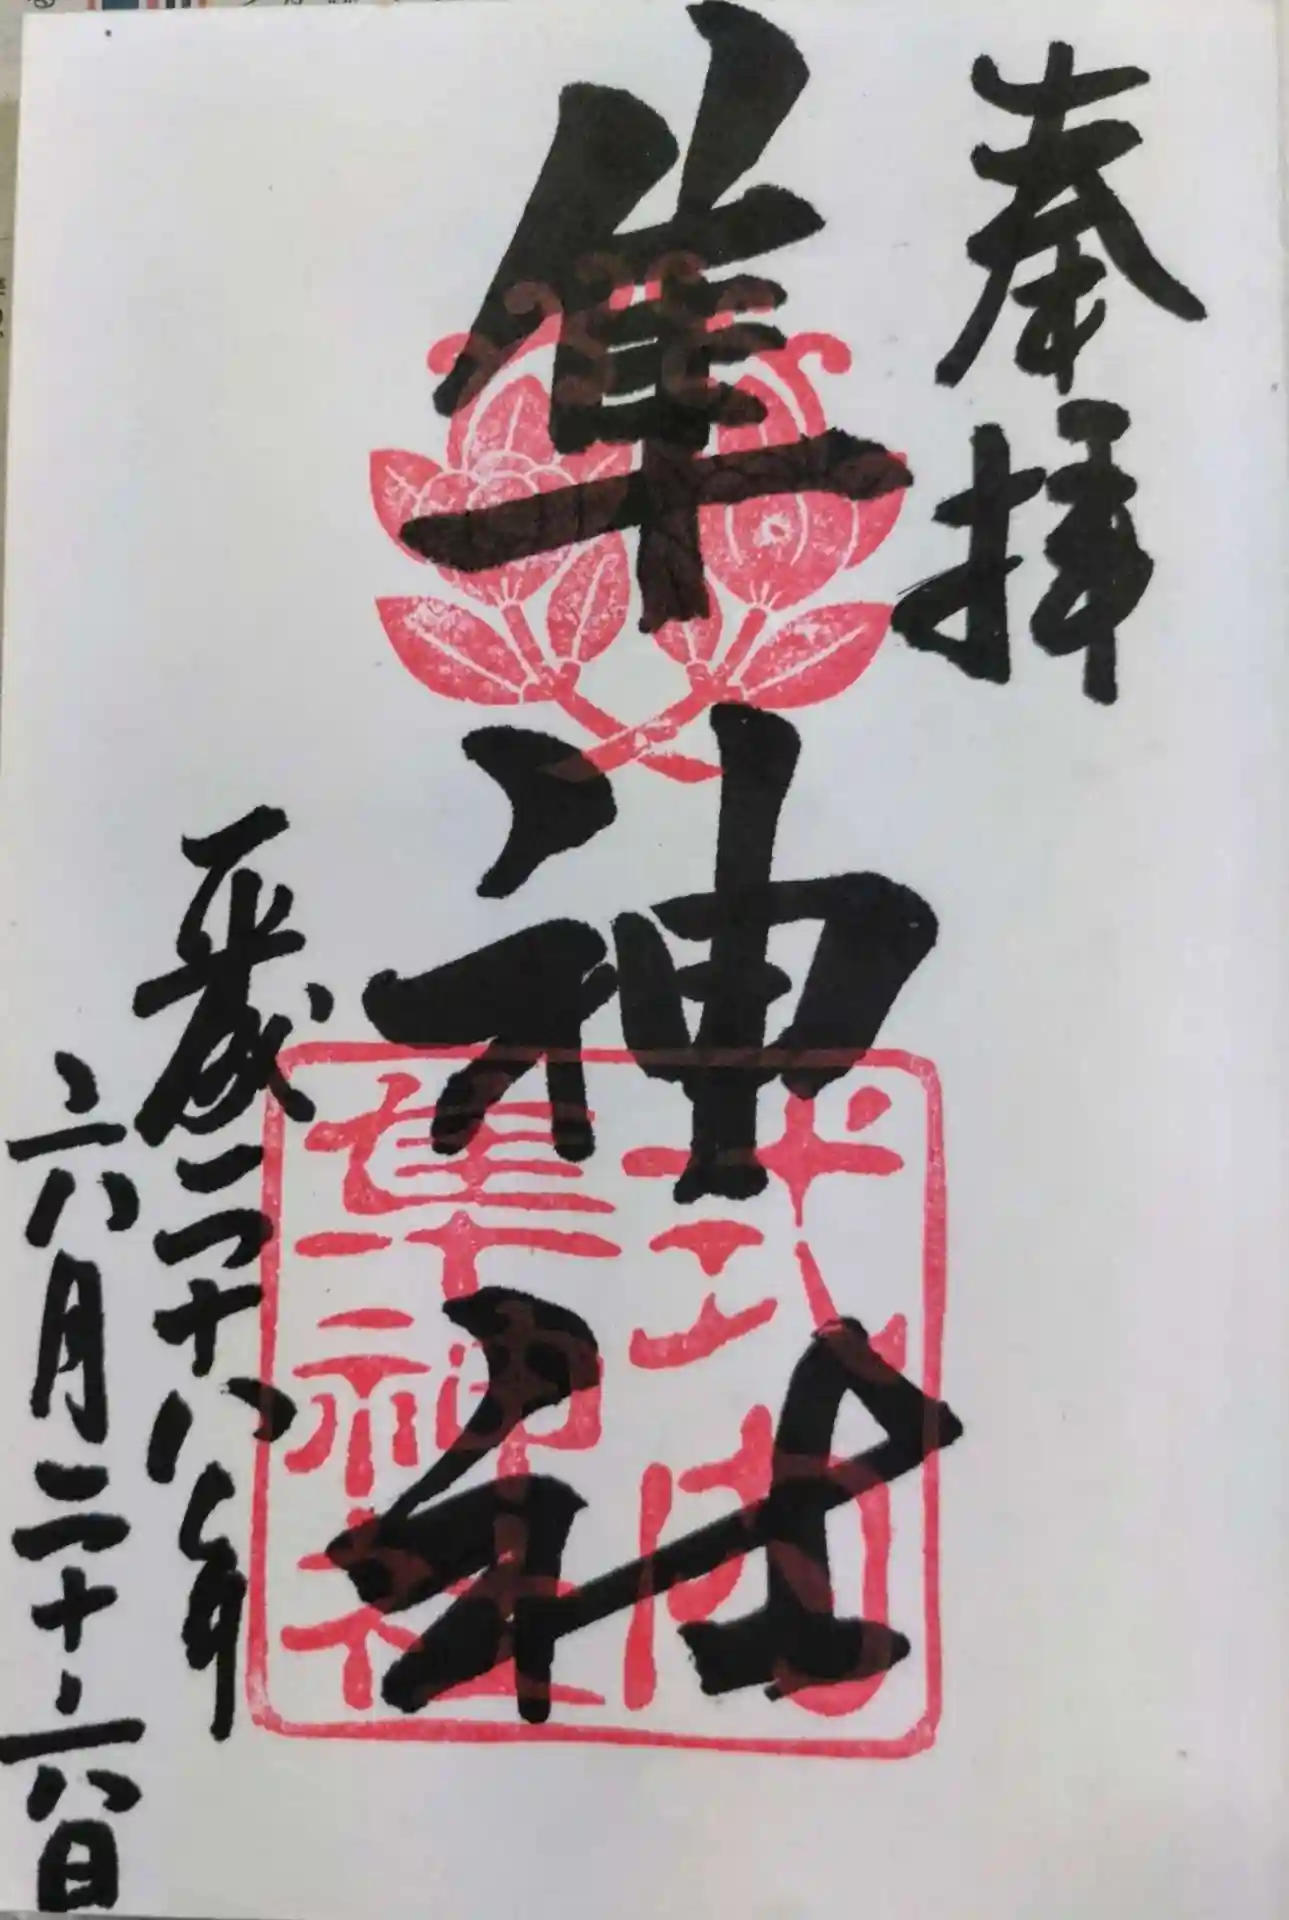 奉拝
隼神社
式内
隼神社
平成二十八年
六月二十六日